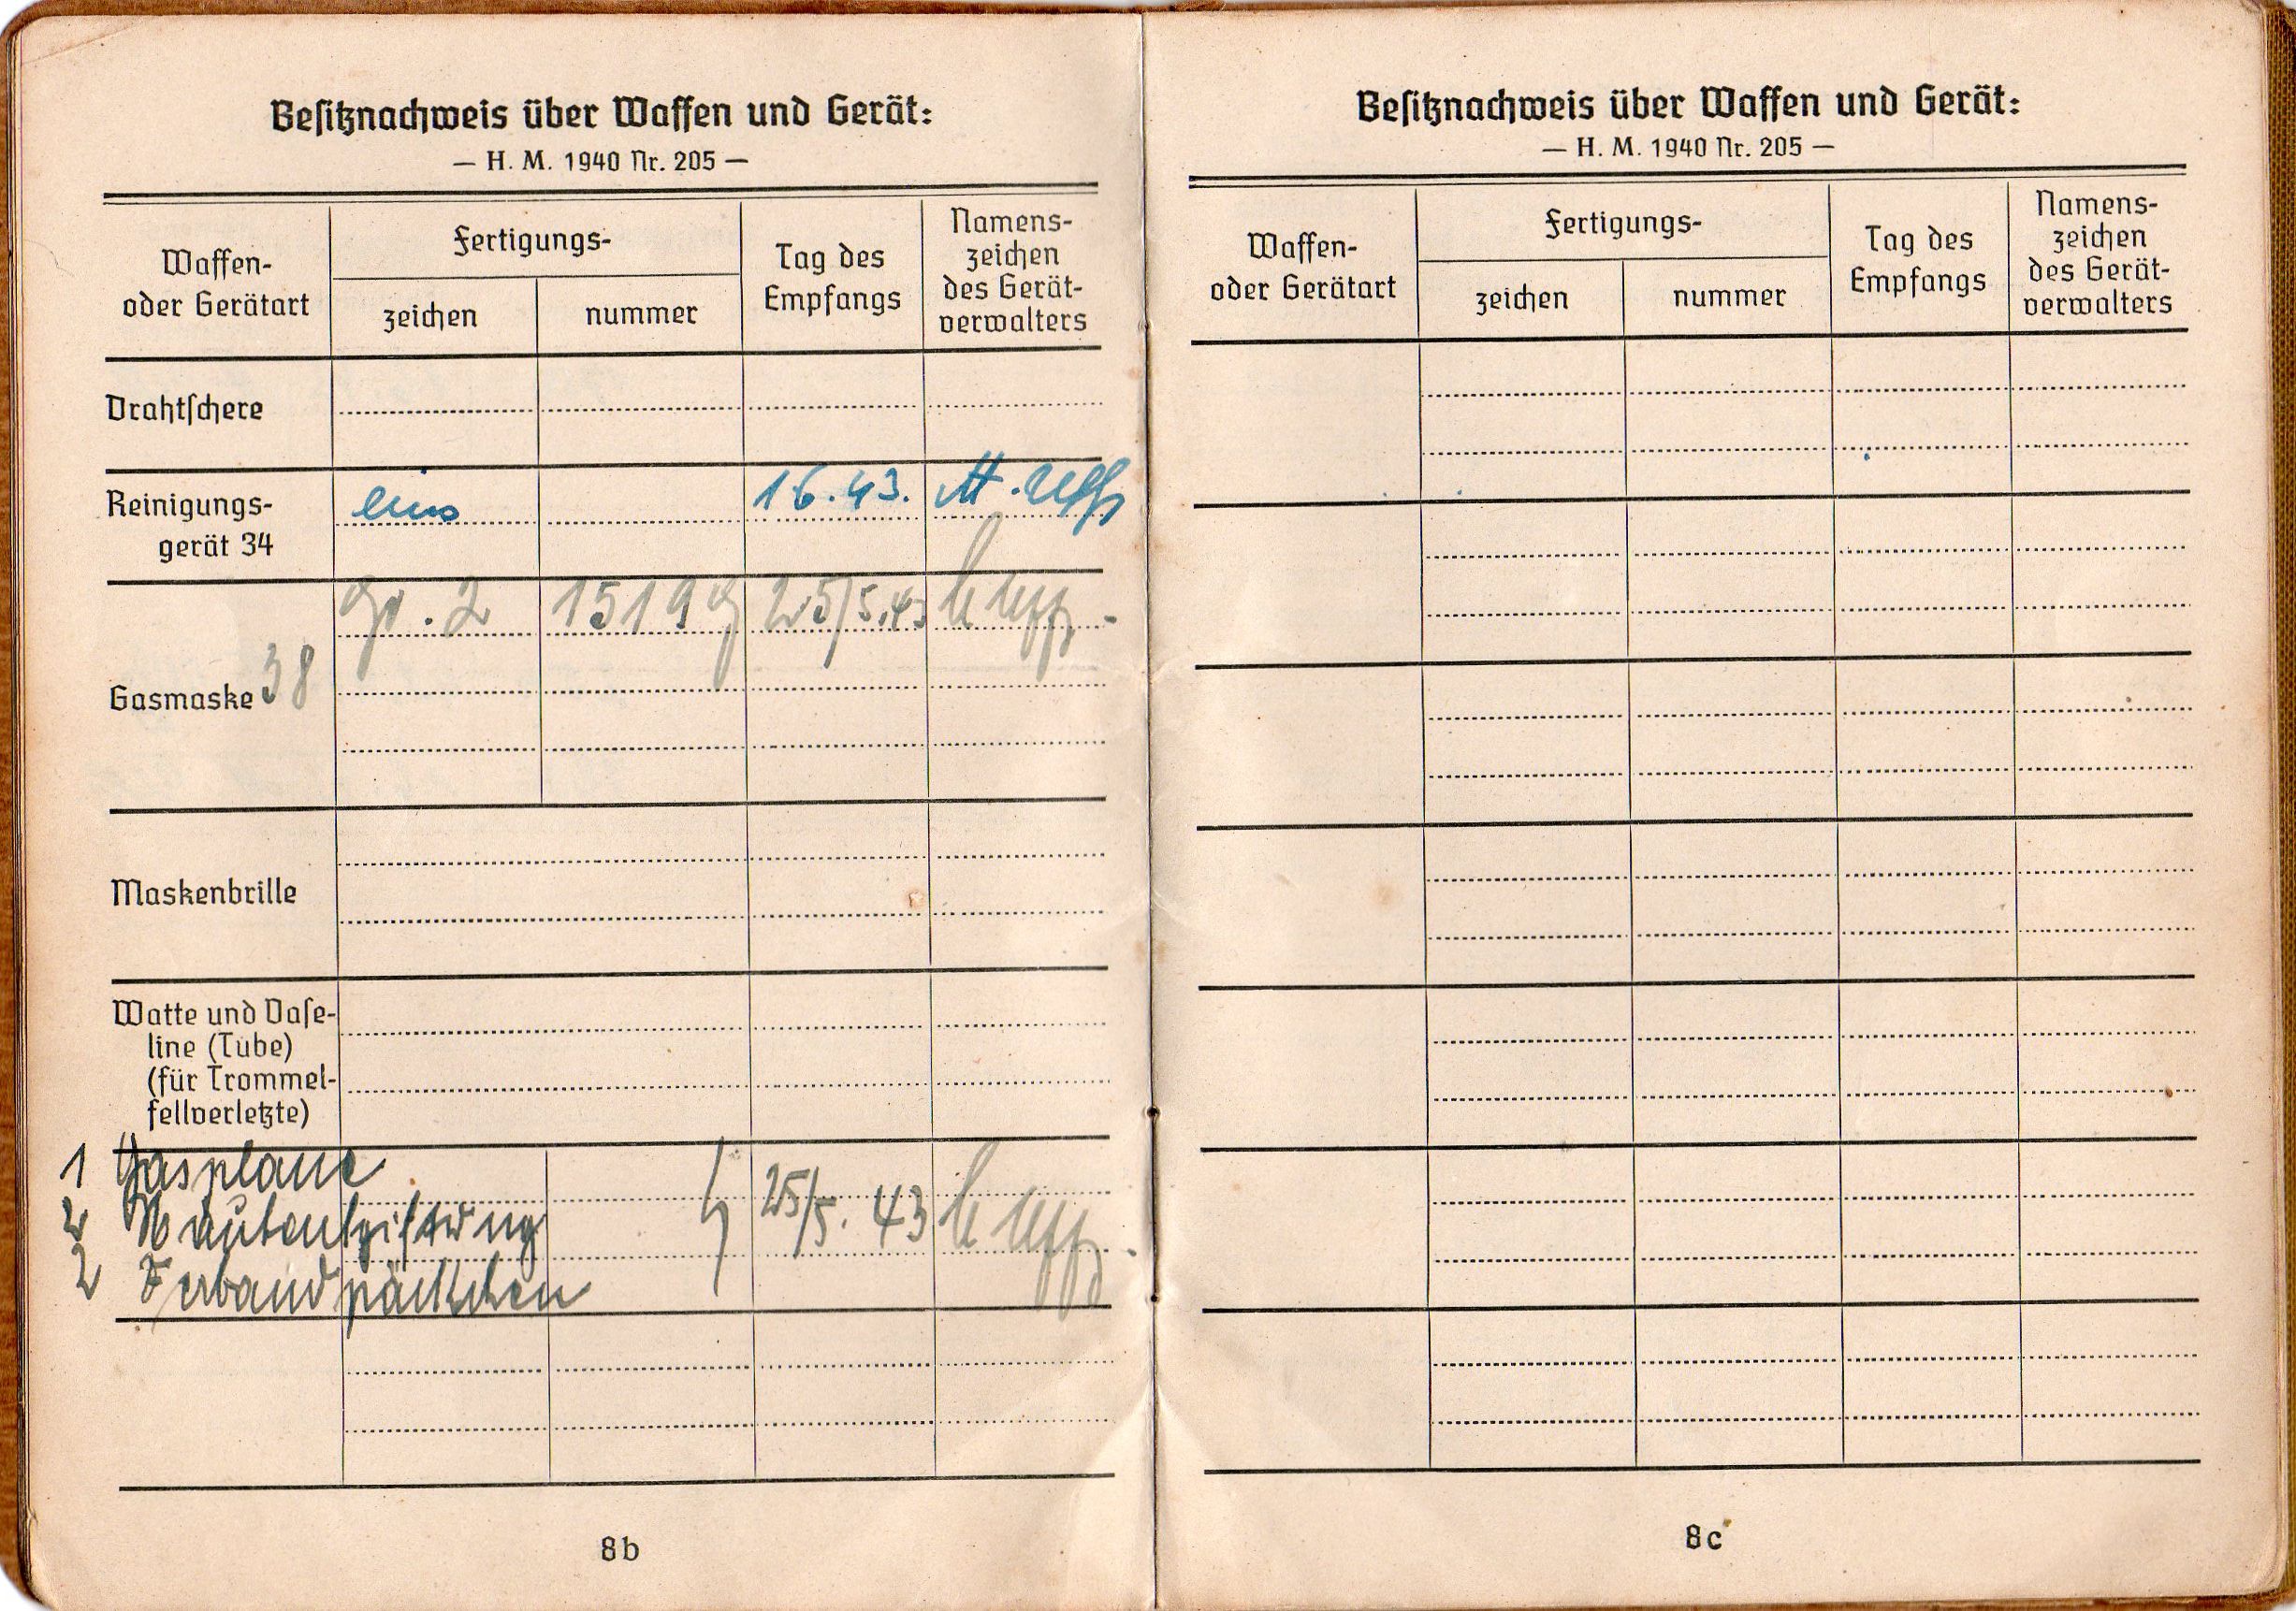 Besitznachweis über Waffen und Gerät:
— H. M. 1940 Nr. 205 —
Waffen-
oder Gerätart
Fertigungs-
zeichen
nummer
Tag des
Empfangs
Namens-
zeichen
des Gerät-
verwalters
Drahtschere
Reinigungs-
gerät 34
eins
16.43.
Gasmaske 38
Gr. 2
1519 g
25/5.43
Maskenbrille
Watte und Vase-
line (Tube)
(für Trommel-
fellverletzte)
1 Gasplane
2
25/5. 43
2 Verbandpäckchen
8b
Besitznachweis über Waffen und Gerät:
— H. M. 1940 Nr. 205 —
Waffen-
oder Gerätart
Fertigungs-
zeichen
nummer
Tag des
Empfangs
Namens-
zeichen
des Gerät-
verwalters
8c